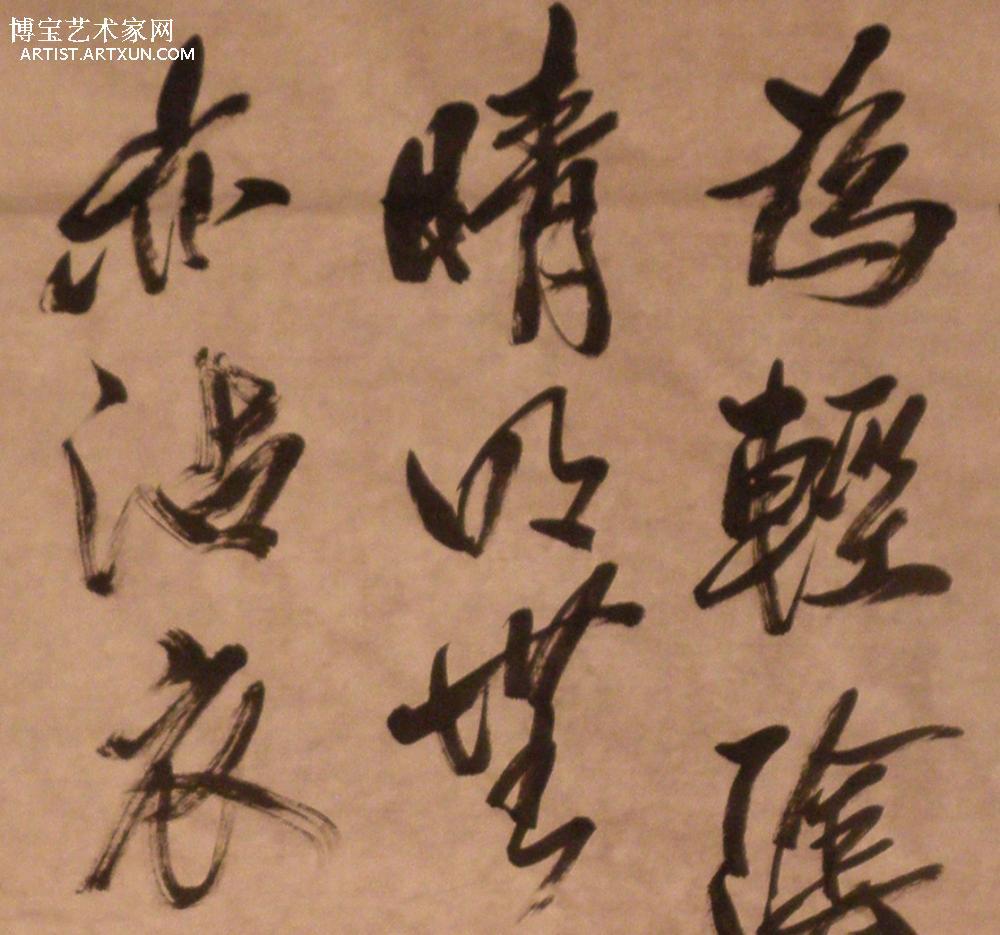 博宝艺术家网
ARTIST.ARTXUN.COM
為輕陰
晴明無
亦沾衣